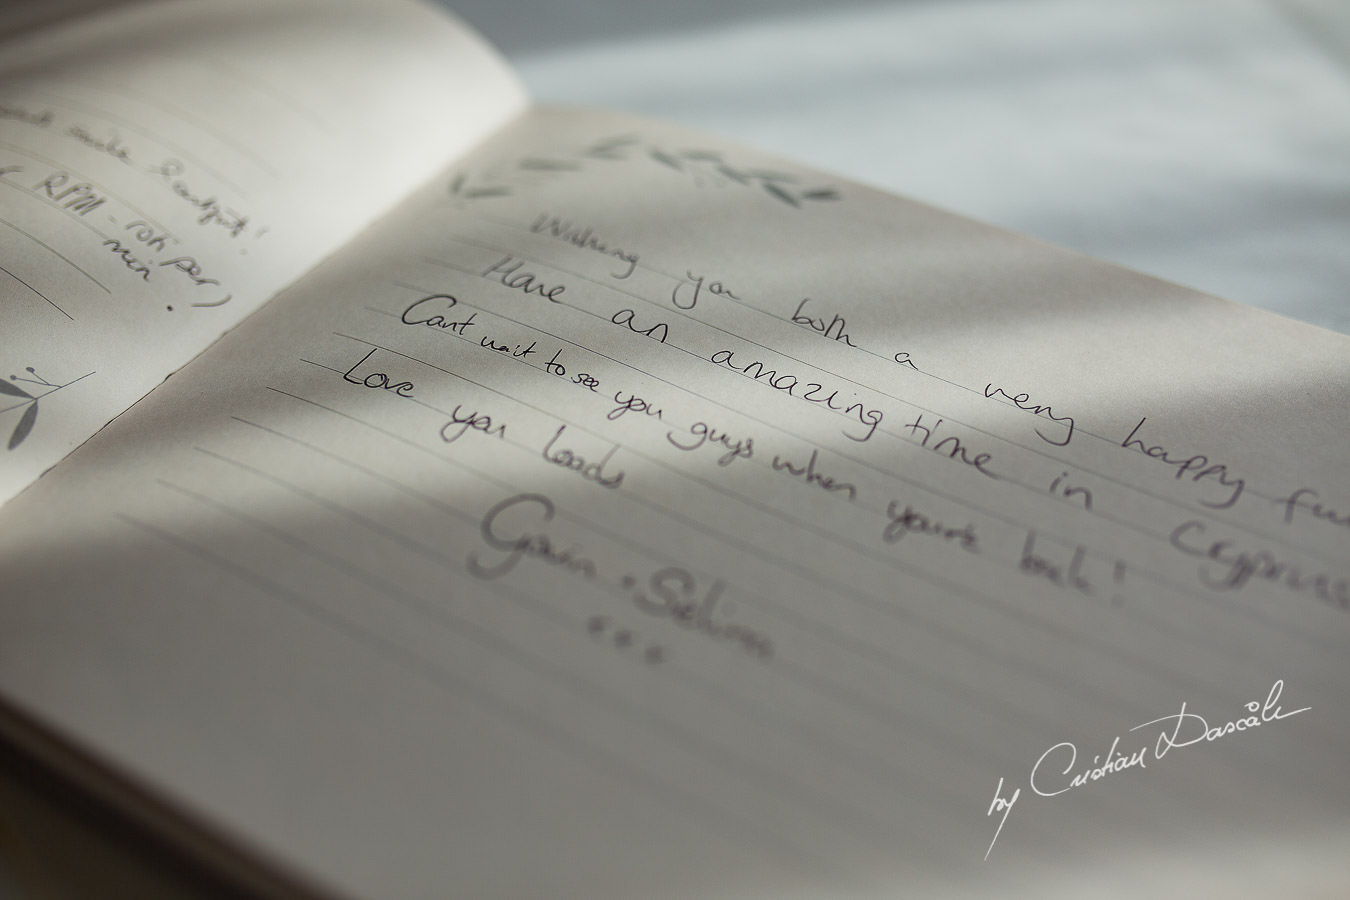 make
( RPM - per
min.)
Wishing you both a very happy fu
Have an amazing time in Cyprus
Cant wait to see you guys when you're back!
Love you loads
Gavin + Selina
by Cristian Dascălu